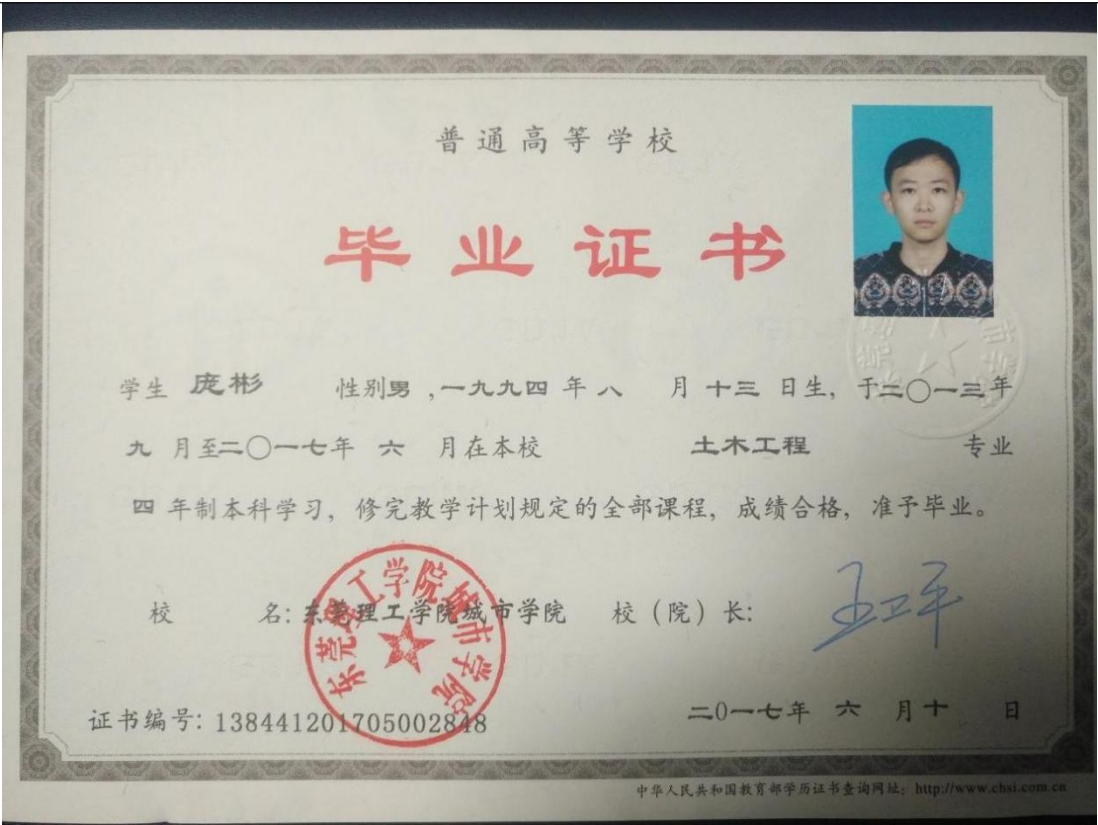 普通高等学校
毕业证书
学生 庞彬 性别男 ,一九九四 年 八 月 十三 日生, 于二〇一三年
九 月至二〇一七年 六 月在本校 土木工程 专业
四 年制本科学习, 修完教学计划规定的全部课程, 成绩合格, 准予毕业。
校 名: 东莞理工学院城市学院 校 (院) 长: 王卫平
东莞理工学院城市学院
证书编号: 138441201705002848 二〇一七年 六 月十 日
中华人民共和国教育部学历证书查询网址: http://www.chsi.com.cn